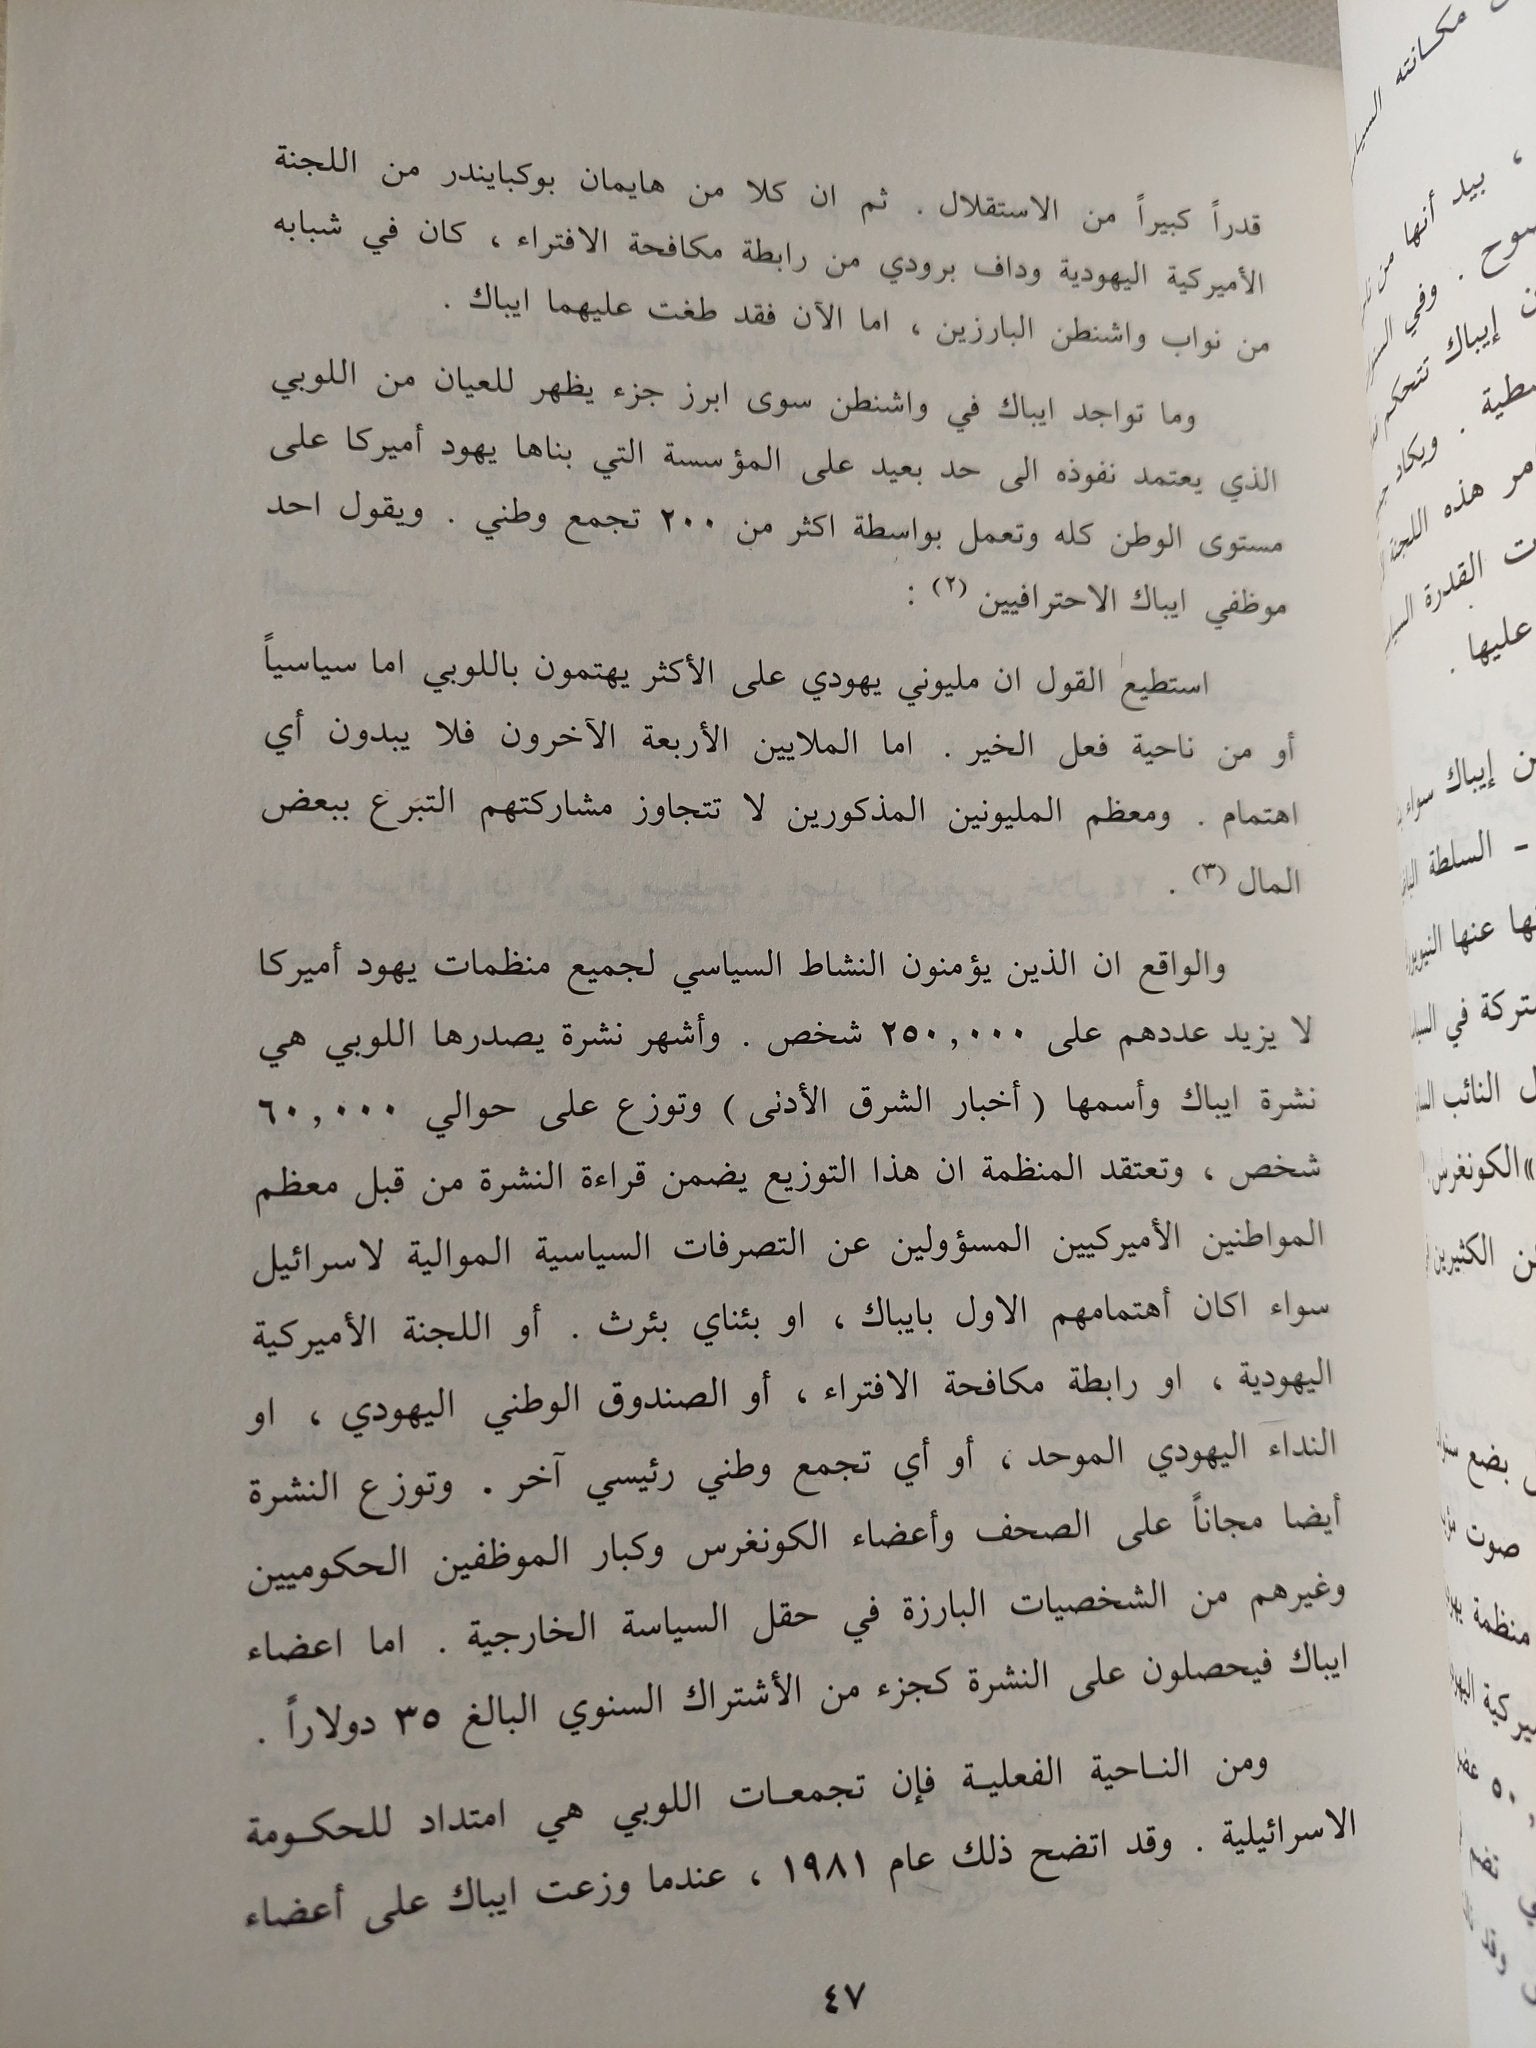 قدراً كبيراً من الاستقلال . ثم ان كلا من هايمان بوكبايندر من اللجنة
الأميركية اليهودية وداف برودي من رابطة مكافحة الافتراء ، كان في شبابه
من نواب واشنطن البارزين ، اما الآن فقد طغت عليهما ايباك .
وما تواجد ايباك في واشنطن سوى ابرز جزء يظهر للعيان من اللوبي
الذي يعتمد نفوذه الى حد بعيد على المؤسسة التي بناها يهود أميركا على
مستوى الوطن كله وتعمل بواسطة اكثر من ٢٠٠ تجمع وطني . ويقول احد
موظفي ايباك الاحترافيين (٢) :
استطيع القول ان مليوني يهودي على الأكثر يهتمون باللوبي اما سياسياً
أو من ناحية فعل الخير . اما الملايين الأربعة الآخرون فلا يبدون أي
اهتمام . ومعظم المليونين المذكورين لا تتجاوز مشاركتهم التبَرع ببعض
المال (٣) .
والواقع ان الذين يؤمنون النشاط السياسي لجميع منظمات يهود أميركا
لا يزيد عددهم على ٢٥٠,٠٠٠ شخص . وأشهر نشرة يصدرها اللوبي هي
نشرة ايباك وأسمها ( أخبار الشرق الأدنى ) وتوزع على حوالي ٦٠,٠٠٠
شخص ، وتعتقد المنظمة ان هذا التوزيع يضمن قراءة النشرة من قبل معظم
المواطنين الأميركيين المسؤولين عن التصرفات السياسية الموالية لاسرائيل
سواء اكان أهتمامهم الاول بايباك ، او بئناي بئرث . أو اللجنة الأميركية
اليهودية ، او رابطة مكافحة الافتراء ، أو الصندوق الوطني اليهودي ، او
النداء اليهودي الموحد ، أو أي تجمع وطني رئيسي آخر . وتوزع النشرة
أيضا مجاناً على الصحف وأعضاء الكونغرس وكبار الموظفين الحكوميين
وغيرهم من الشخصيات البارزة في حقل السياسة الخارجية . اما اعضاء
ايباك فيحصلون على النشرة كجزء من الأشتراك السنوي البالغ ٣٥ دولاراً .
ومن النـاحية الفعليـة فإن تجمعـات اللوبي هي امتداد للحكـومة
الاسرائيلية . وقد اتضح ذلك عام ١٩٨١ ، عندما وزعت ايباك على أعضاء
٤٧
مكانته
، بيد أنها من
. وفي
إيباك تتحكم
. ويكاد
هذه اللجنة
القدرة
عليها .
إيباك سواء
- السلطة
عنها
في
النائب
الكثيرين
بضع
صوت
منظمة
وقد